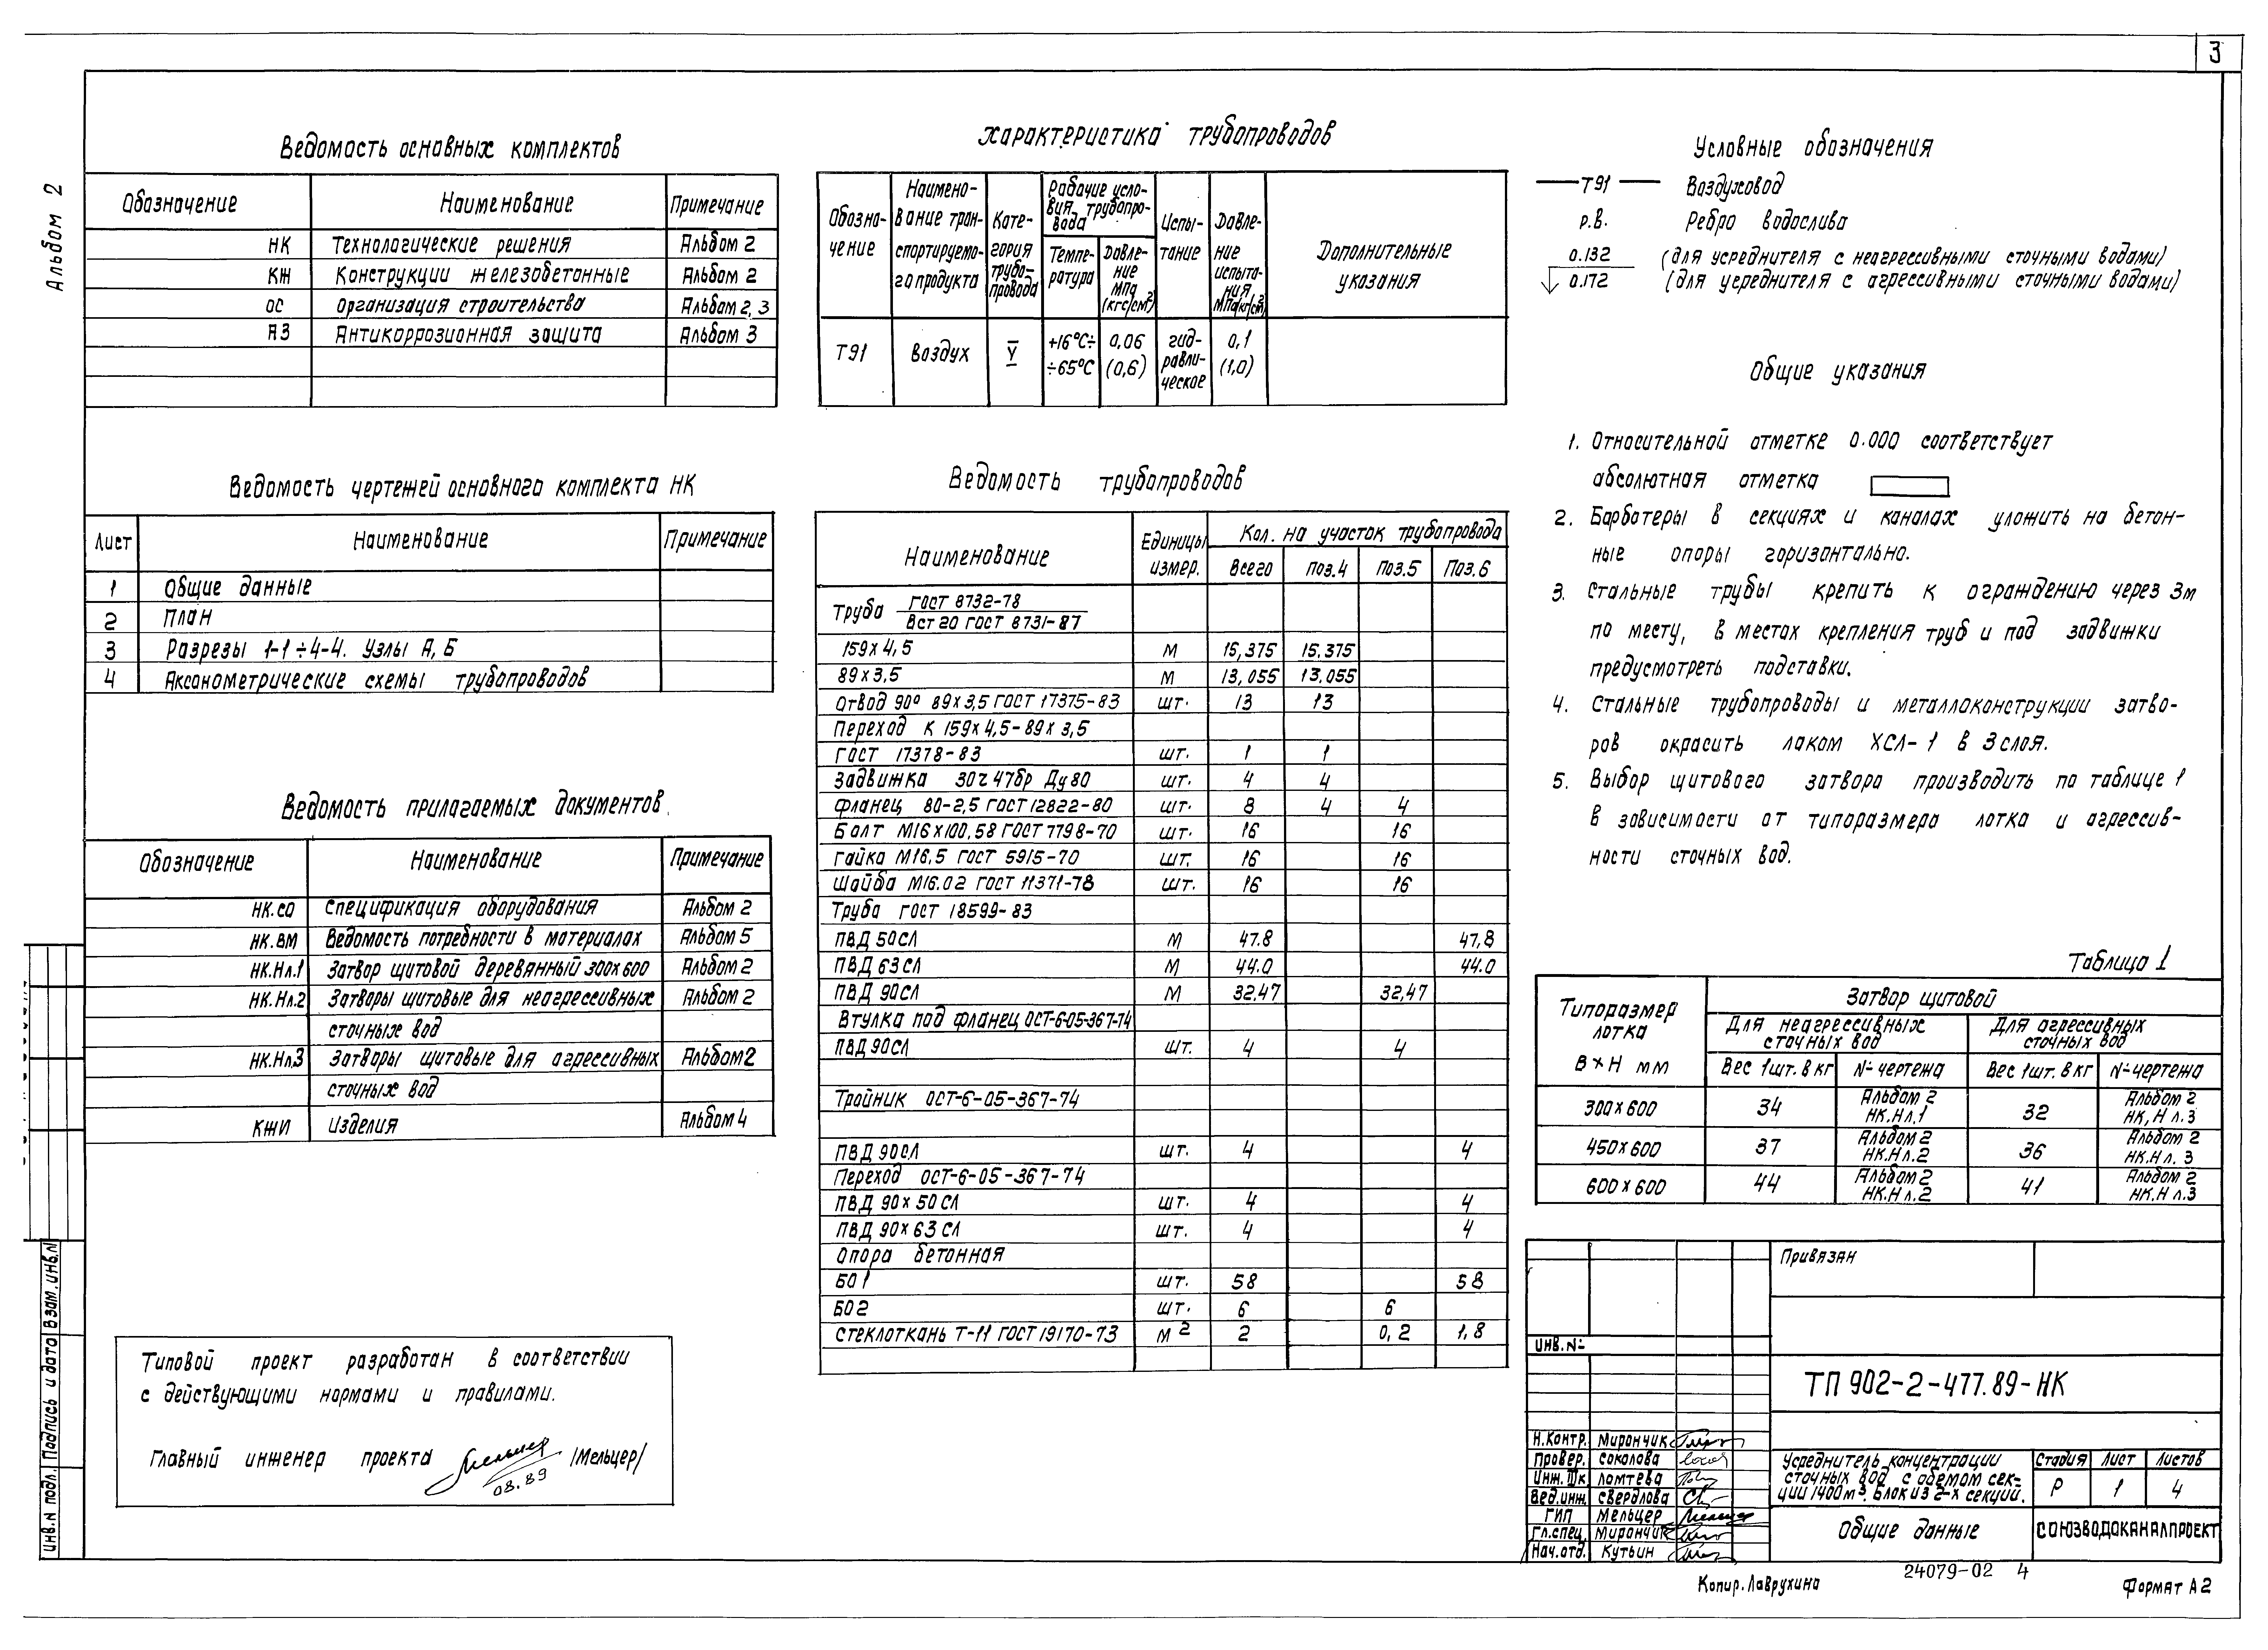 3
Альбом 2
Ведомость основных комплектов
Обозначение Наименование Примечание
НК Технологические решения Альбом 2
КЖ Конструкции железобетонные Альбом 2
ОС Организация строительства Альбом 2,3
АЗ Антикоррозионная защита Альбом 3
Ведомость чертежей основного комплекта НК
Лист Наименование Примечание
1 Общие данные
2 План
3 Разрезы 1-1÷4-4. Узлы А, Б
4 Аксонометрические схемы трубопроводов
Ведомость прилагаемых документов.
Обозначение Наименование Примечание
НК.СО Спецификация оборудования Альбом 2
НК.ВМ Ведомость потребности в материалах Альбом 5
НК.Нл.1 Затвор щитовой деревянный 300х600 Альбом 2
НК.Нл.2 Затворы щитовые для неагрессивных Альбом 2
сточных вод
НК.Нл.3 Затворы щитовые для агрессивных Альбом 2
сточных вод
КЖИ Изделия Альбом 4
Типовой проект разработан в соответствии
с действующими нормами и правилами.
Главный инженер проекта /Мельцер/
08.89
Характеристика трубопроводов
Обозна-
чение
Наимено-
вание тран-
спортируемо-
го продукта
Кате-
гория
трубо-
провода
Рабочие усло-
вия трубопро-
вода
Темпе-
ратура
Давле-
ние
МПа
(кгс/см²)
Испы-
тание
Давле-
ние
испыта-
ния
МПа(кг/см²)
Дополнительные
указания
Т91 Воздух V +16°С÷ ÷65°С 0,06 (0,6) гид-
равли-
ческое 0,1 (1,0)
Ведомость трубопроводов
Наименование Единицы измер. Кол. на участок трубопровода
Всего Поз.4 Поз.5 Поз.6
Труба ГОСТ 8732-78
Вст20 ГОСТ 8731-87
159х4,5 м 15,375 15,375
89х3,5 м 13,055 13,055
Отвод 90° 89х3,5 ГОСТ 17375-83 шт. 13 13
Переход К 159х4,5-89х3,5
ГОСТ 17378-83 шт. 1 1
Задвижка 30ч47бр Ду80 шт. 4 4
Фланец 80-2,5 ГОСТ 12822-80 шт. 8 4 4
Болт М16х100,58 ГОСТ 7798-70 шт. 16 16
Гайка М16,5 ГОСТ 5915-70 шт. 16 16
Шайба М16.02 ГОСТ 11371-78 шт. 16 16
Труба ГОСТ 18599-83
ПВД 50СЛ м 47.8 47,8
ПВД 63СЛ м 44.0 44.0
ПВД 90СЛ м 32,47 32,47
Втулка под фланец ОСТ-6-05-367-74
ПВД 90СЛ шт. 4 4
Тройник ОСТ-6-05-367-74
ПВД 90СЛ шт. 4 4
Переход ОСТ-6-05-367-74
ПВД 90х50СЛ шт. 4 4
ПВД 90х63СЛ шт. 4 4
Опора бетонная
БО1 шт. 58 58
БО2 шт. 6 6
Стеклоткань Т-11 ГОСТ 19170-73 м² 2 0,2 1,8
Условные обозначения
—Т91— Воздуховод
р.в. Ребро водослива
0.132 (для усреднителя с неагрессивными сточными водами)
0.172 (для усреднителя с агрессивными сточными водами)
Общие указания
1. Относительной отметке 0.000 соответствует
абсолютная отметка
2. Барботеры в секциях и каналах уложить на бетон-
ные опоры горизонтально.
3. Стальные трубы крепить к ограждению через 3м
по месту, в местах крепления труб и под задвижки
предусмотреть подставки.
4. Стальные трубопроводы и металлоконструкции затво-
ров окрасить лаком ХСЛ-1 в 3 слоя.
5. Выбор щитового затвора производить по таблице 1
в зависимости от типоразмера лотка и агрессив-
ности сточных вод.
Таблица 1
Типоразмер
лотка
В×Н мм
Затвор щитовой
Для неагрессивных
сточных вод
Для агрессивных
сточных вод
Вес 1шт. в кг №чертежа Вес 1шт. в кг №чертежа
300х600 34 Альбом 2 НК.Нл.1 32 Альбом 2 НК,Нл.3
450х600 37 Альбом 2 НК.Нл.2 36 Альбом 2 НК.Нл.3
600х600 44 Альбом 2 НК.Нл.2 41 Альбом 2 НК.Нл.3
Привязан
Инв.№
ТП 902-2-477.89-НК
Н.контр. Мирончик
Провер. Соколова
Инж. IIк Ломтева
Вед.инж. Свердлова
ГИП Мельцер
Гл.спец. Мирончик
Нач.отд. Кутьин
Усреднитель концентрации
сточных вод с обемом сек-
ции 1400м³. Блок из 2-х секций.
Стадия Лист Листов
Р 1 4
Общие данные
СОЮЗВОДОКАНАЛПРОЕКТ
24079-02 4
Копир. Лаврухина
Формат А2
Инв.N подл. Подпись и дата Взам.инв.N